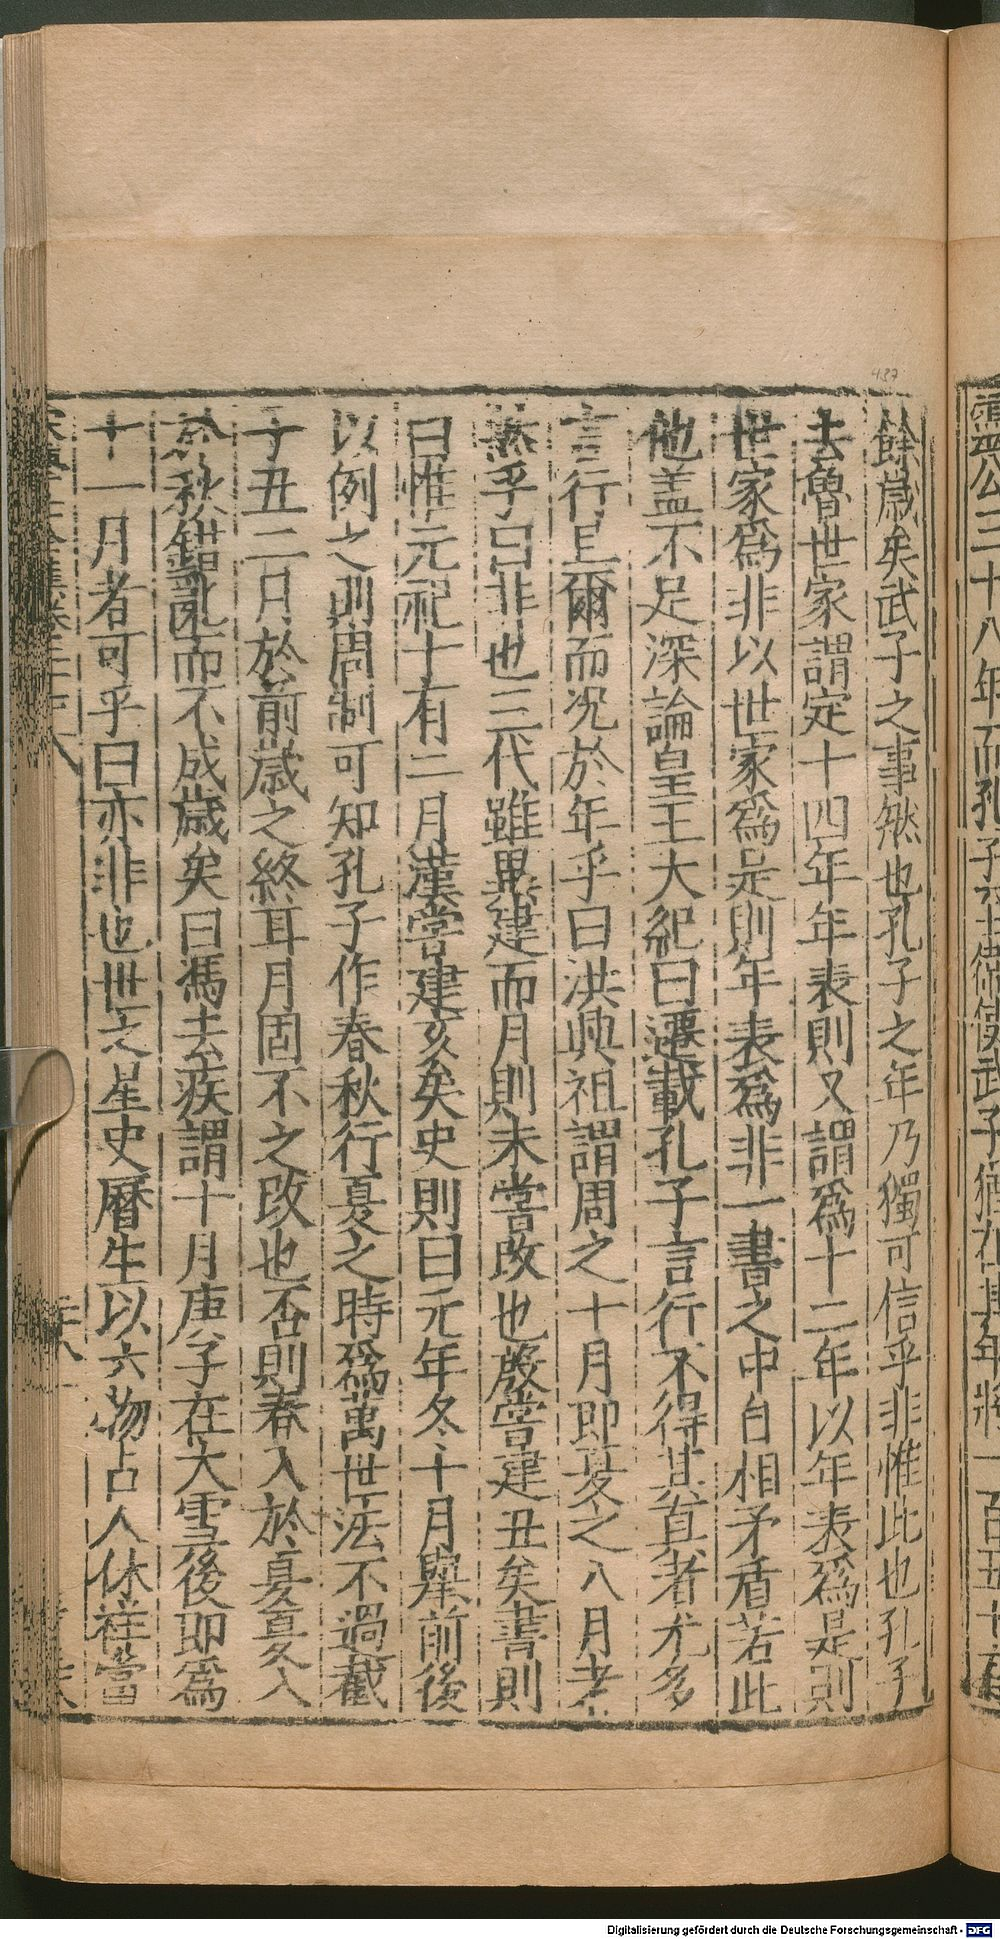 餘歲矣武子之事然也孔子之年乃獨可信乎非惟此也孔子
去魯世家謂定十四年年表則又謂爲十二年以年表爲是則
世家爲非以世家爲是則年表爲非一書之中自相矛盾若此
他盖不足深論皇王大紀曰遷載孔子言行不得其真者尤多
言行且爾而况於年乎曰洪興祖謂周之十月即夏之八月者
然乎曰非也三代雖異建而月則未嘗改也殷嘗建丑矣書則
曰惟元祀十有二月漢嘗建亥矣史則曰元年冬十月舉前後
以例之則周制可知孔子作春秋行夏之時爲萬世法不過截
子丑二月於前歲之終耳月固不之改也否則春入於夏夏入
於秋錯亂而不成歲矣曰馮去疾謂十月庚子在大雪後即爲
十一月者可乎曰亦非也世之星史曆生以六物占人休祥當
孔子
三十八年而
武子猶在其年將一百五十有
437
Digitalisierung gefördert durch die Deutsche Forschungsgemeinschaft - DFG